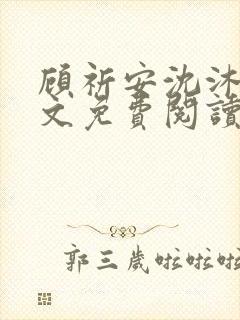 顾祈安沈沐
文免費閱讀
郭三歲啦啦啦